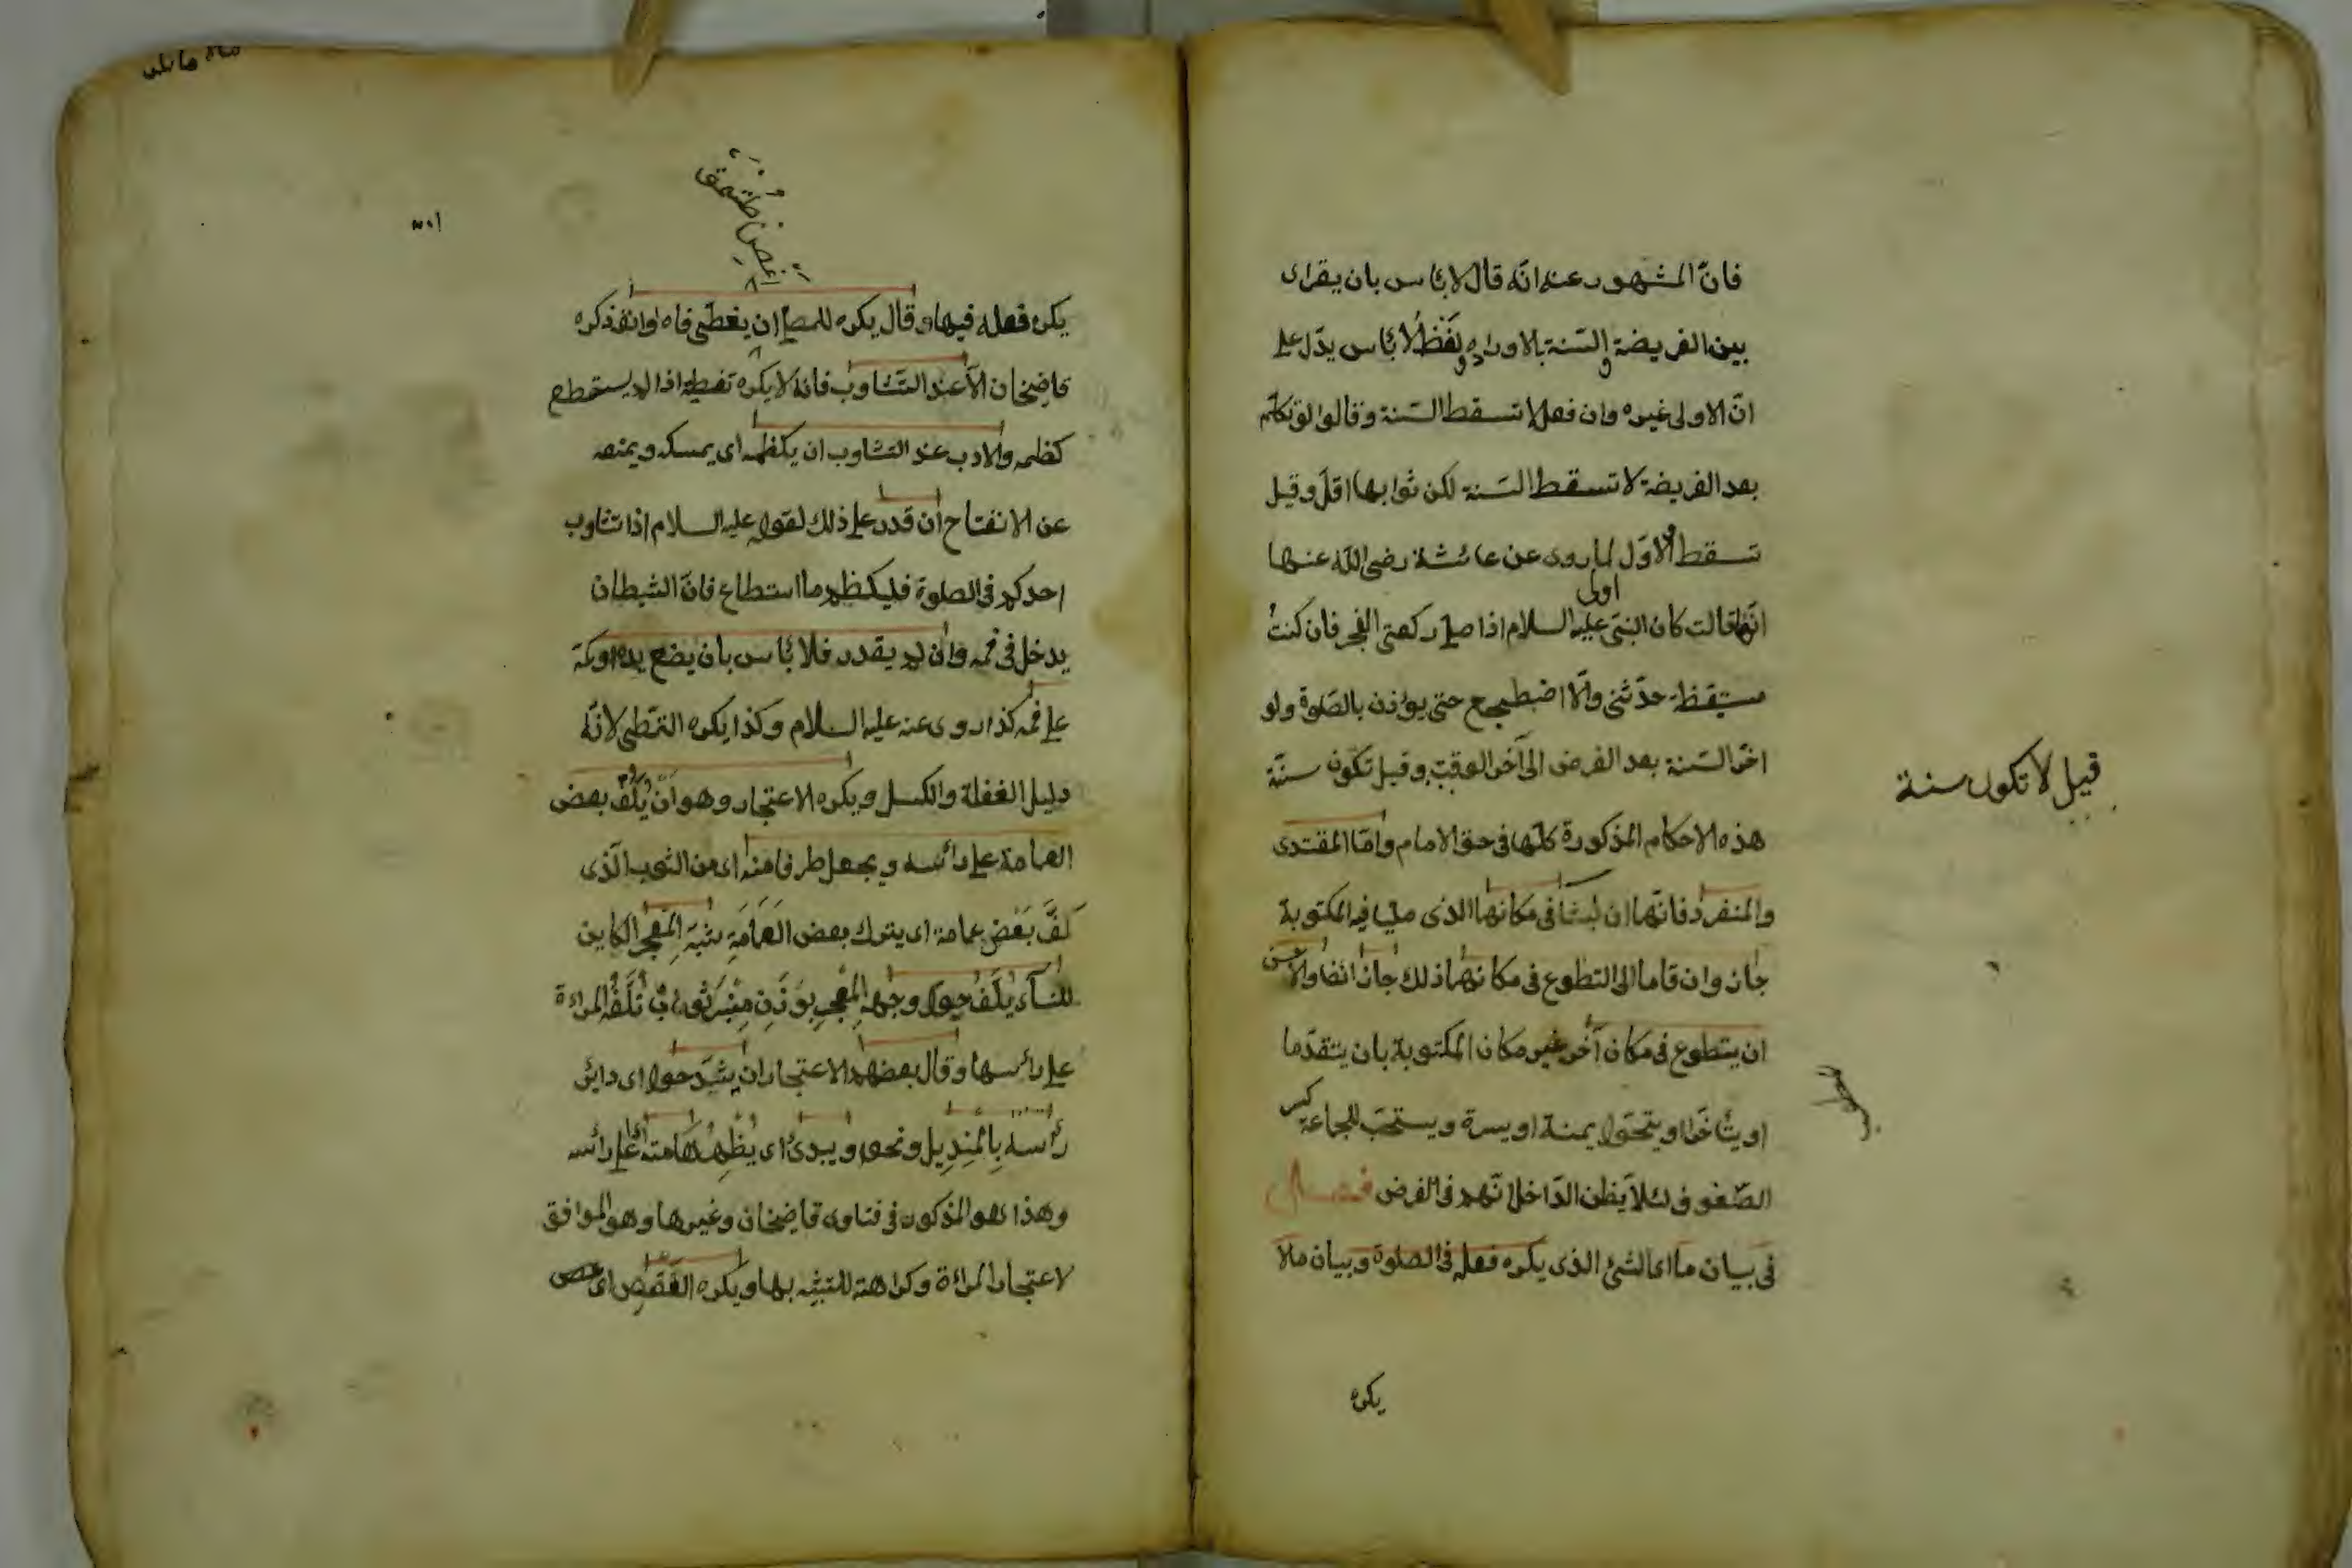 فانّ المشهور عنه انّه قال لا بأس بان يقرأ
بين الفريضة والسّنة بالاوراد ولفظ لا بأس يدّل على
انّ الاولى غيره وان فعل لا تسقط السّنة وقالوا لو تكلّم
بعد الفريضة لا تسقط السّنة لكن ثوابها اقلّ وقيل
تسقط والاوّل اولى لما روى عن عائشة رضى اللّه عنها
انّها قالت كان النبىّ عليه السلام اذا صلى ركعتى الفجر فان كنتُ
مستيقظة حدّثنى والّا اضطجع حتى يؤذن بالصّلوة ولو
اخّر السّنة بعد الفرض الى آخر الوقت وقيل تكون سنّة
قيل لا تكون سنة
هذه الاحكام المذكورة كلّها فى حق الامام وامّا المقتدى
والمنفرد فانّهما ان لبثا فى مكانهما الذى صليا فيه المكتوبة
جاز وان قاما الى التطوع فى مكانهما ذلك جاز ايضا والاحسن
ان يتطوع فى مكان آخر غير مكان المكتوبة بان يتقدّما
او يتأخّرا او يتحوّلا يمنة او يسرة ويستحبّ للجماعة كسر
الصّفوف لئلا يظن الدّاخل انّهم فى الفرض فصل
فى بيان ما اى الشئ الذى يكره فعله فى الصلوة وبيان ما لا
يكره
يكره فعله فيها وقال يكره للمصلى ان يغطّى فاه او انفه ذكره
قاضيخان الّا عند التثاوب فانه لا يكره تغطيه اذا لم يستطع
كظمه والادب عند التثاوب ان يكظمه اى يمسكه ويمنعه
عن الانفتاح ان قدر على ذلك لقوله عليه السلام اذا تثاوب
احدكم فى الصلوة فليكظم ما استطاع فانّ الشيطان
يدخل فى فمه وان لم يقدر فلا بأس بان يضع يده او كمّه
على فمه كذا روى عنه عليه السلام وكذا يكره التمطّى لانّه
دليل الغفلة والكسل ويكره الاعتجار وهو ان يكفّ بعض
العمامة على رأسه ويجعل طرفا منه اى من الثوب الّذى
كفّ بَعْض عمامة اى يترك بعض العمامة شبه المعجر الكاين
للنسآء يلف حول وجهه المعجر بوزن منبر ثوب تلفّه المراءة
على رأسها وقال بعضهم الاعتجار ان يشدّ حول اى داير
رأسه بالمنديل ونحوه ويبدئ اى يُظْهِر هامته اى اعلى رأسه
وهذا هو المذكور فى فتاوى قاضيخان وغيرها وهو الموافق
لاعتجار المرأة وكراهته للتشبّه بها ويكره العقص اى عقص